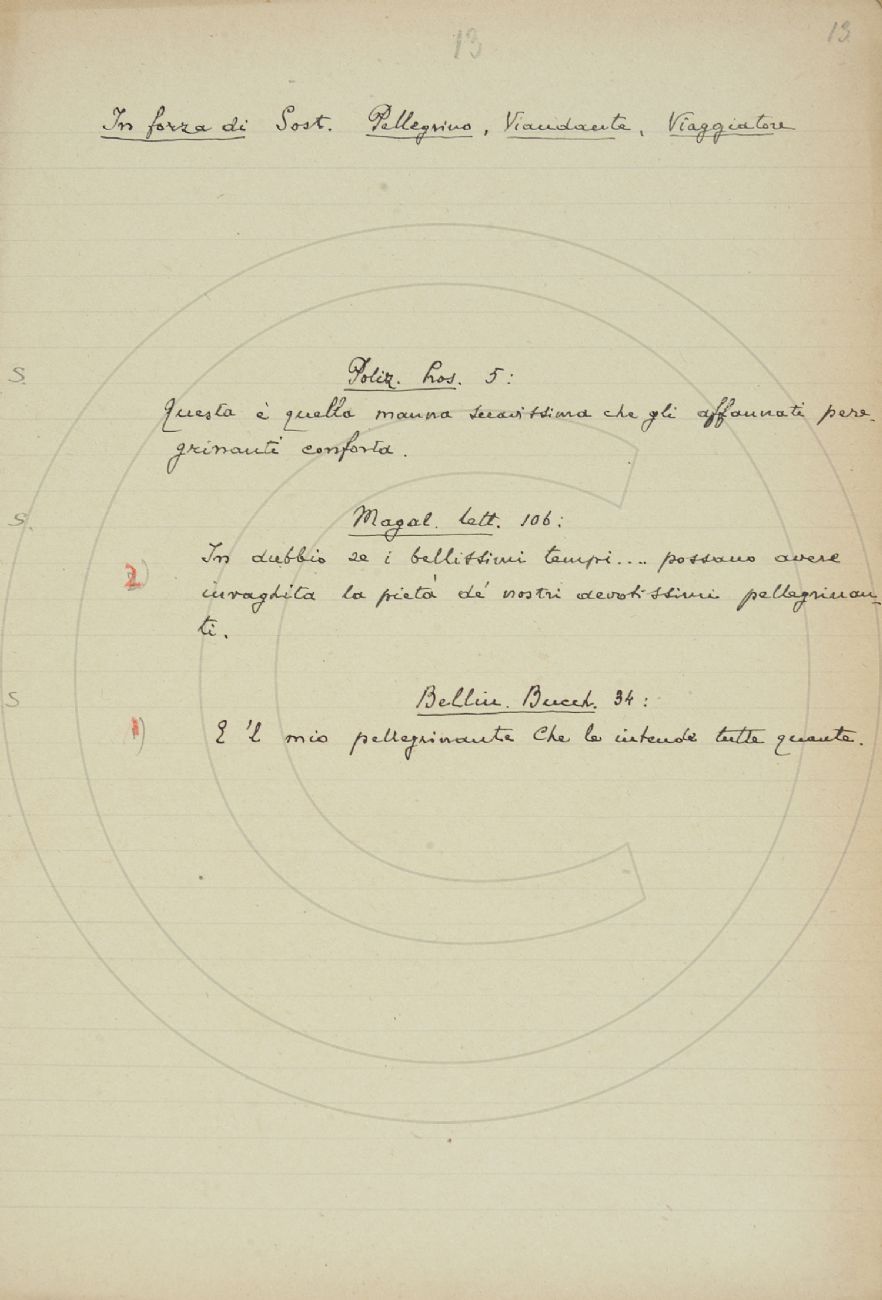 13
13
In forza di Sost. Pellegrino, Viandante, Viaggiatore
S.
Poliz. Pros. 5:
Questa è quella manna suavissima che gli affannati pere-
grinanti conforta.
S.
Magal. Lett. 106:
In dubbio se i bellissimi tempi.... possano avere
2)
invaghita la pietà de' nostri devotissimi pellegrinan-
ti.
S
Bellin. Bucch. 34:
1)
E 'l mio pellegrinante Che le intende tutte quante.